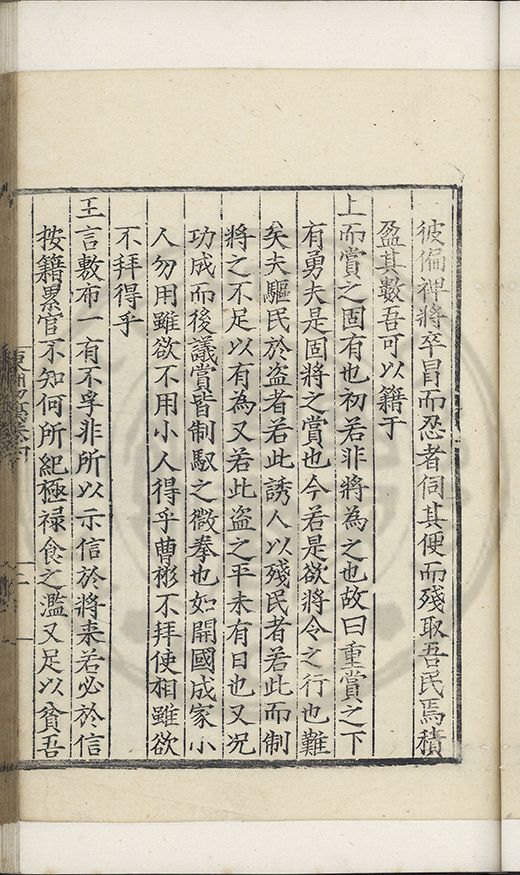 彼偏裨將卒冒而忍者伺其便而殘取吾民焉積
盈其數吾可以籍于
上而賞之固有也初若非將為之也故曰重賞之下
有勇夫是固將之賞也今若是欲將令之行也難
矣夫驅民於盗者若此誘人以殘民者若此而制
將之不足以有為又若此盗之平未有日也又况
功成而後議賞皆制馭之微拳也如開國成家小
人勿用雖欲不用小人得乎曹彬不拜使相雖欲
不拜得乎
王言敷布一有不孚非所以示信於將来若必於信
按籍累官不知何所紀極禄食之濫又足以貧吾